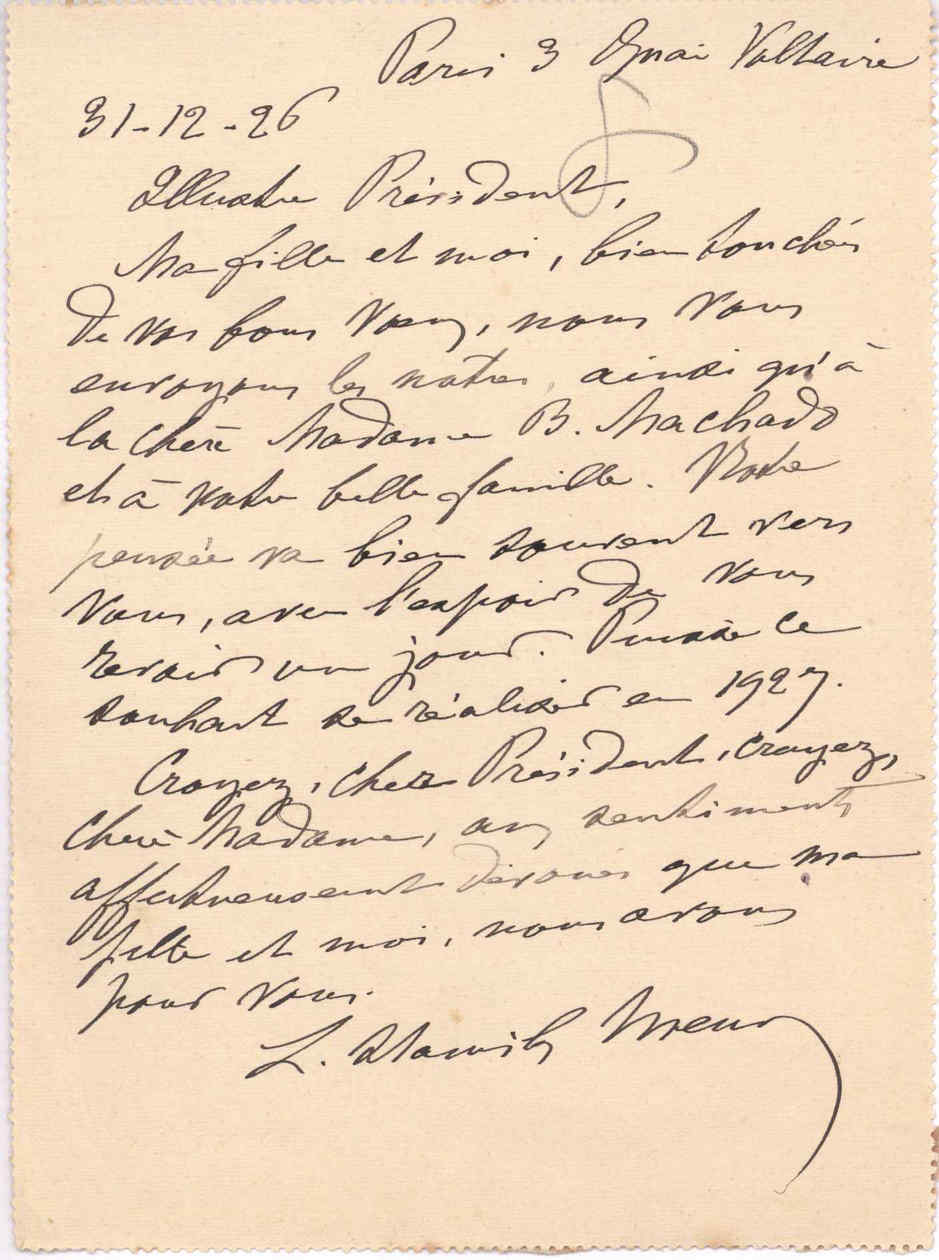 Paris 3 Quai Voltaire
31-12-26
Illustre Président,
Ma fille et moi, bien touchés
de vos bons vœux, nous vous
envoyons les nôtres, ainsi qu'à
la chère Madame B. Machado
et à votre belle famille. Notre
pensée va bien souvent vers
vous, avec l'espoir de vous
revoir un jour. Puisse ce
souhait se réaliser en 1927.
Croyez, cher Président, croyez,
chère Madame, aux sentiments
affectueusement dévoués que ma
fille et moi, nous avons
pour vous.
L. Stanislas Meunier